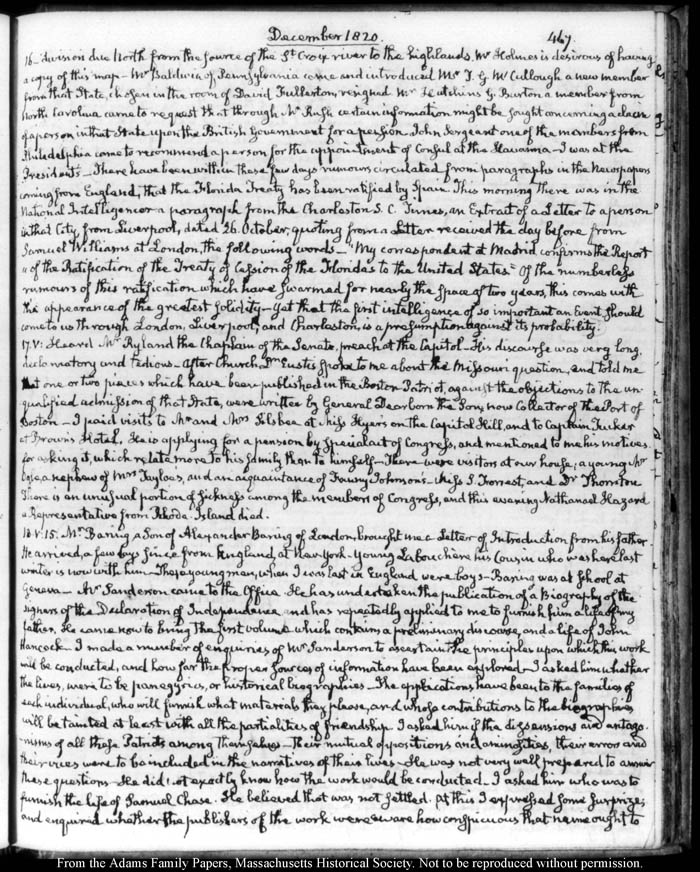 December 1820.
467.
16- division due North from the Source of the St Croix river to the highlands. Mr Holmes is desirous of having
a copy of this map — Mr Baldwin of Pennsylvania came and introduced Mr T. G. McCullough a new member
from that State, chosen in the room of David Fullerton resigned Mr Hutchins G. Burton a member from
North Carolina came to request that through Mr Rush certain information might be sought concerning a claim
of a person in that State upon the British Government for a pension. John Sergeant one of the members from
Philadelphia came to recommend a person for the appointment of Consul at the Havanna — I was at the
Presidents — There have been within these few days rumours circulated from paragraphs in the Newspapers
coming from England, that the Florida Treaty has been ratified by Spain. This morning there was in the
National Intelligencer a paragraph from the Charleston S. C. Times, an Extrait of a Letter to a person
in that City, from Liverpool, dated 26. October, quoting from a Letter received the day before from
Samuel Williams at London, the following words — "My correspondent at Madrid confirms the Report
" of the Ratification of the Treaty of Cession of the Floridas to the United States" Of the numberless
rumours of this ratification which have swarmed for nearly the space of two years, this comes with
the appearance of the greatest solidity — Yet that the first intelligence of so important an Event should
come to us through London, Liverpool, and Charleston, is a presumption against its probability.
17. V: Heard Mr Ryland the Chaplain of the Senate, preach at the Capitol — His discourse was very long,
declamatory and tedious — After Church Dr Eustis spoke to me about the Missouri question, and told me
that one or two pieces which have been published in the Boston Patriot, against the objections to the un-
qualified admission of that State, were written by General Dearborn the Son, now Collector of the Port of
Boston — I paid visits to Mr and Mrs Silsbee at Miss Hyers on the Capitol Hill, and to Captain Tucker
at Brown's Hotel. He is applying for a pension by special act of Congress, and mentioned to me his motives
for asking it, which relate more to his family than to himself — There were visitors at our house; a young Mr
a nephew of Mrs Tayloe's, and an acquaintance of Fanny Johnson's — Miss S. Forrest, and Dr Thornton
There is an unusual portion of sickness among the members of Congress, and this evening Nathanael Hazard
a Representative from Rhode Island died.
18. V. 15. Mr Baring a Son of Alexander Baring of London, brought me a Letter of Introduction from his father.
He arrived, a few days since from England, at New-York — Young Labouchere his Cousin who was here last
winter is now with him — These young men, when I was last in England were boys — Baring was at School at
Geneva — Mr Sanderson came to the Office. He has undertaken the publication of a Biography of the
signers of the Declaration of Independence, and has repeatedly applied to me to furnish him a life of my
father. He came now to bring the first volume which contains a preliminary discourse, and a life of John
Hancock. I made a number of enquiries of Mr Sanderson to ascertain the principles upon which his work
will be conducted, and how far the proper sources of information have been explored — I asked him whether
the lives, were to be panegyrics, or historical biographies — The applications have been to the families of
each individual, who will furnish what materials they please, and whose contributions to the biographies
will be tainted at least with all the partialities of friendship. I asked him if the dissensions and antago-
nisms of all these Patriots among themselves — Their mutual oppositions and animosities, their errors and
their vices were to be included in the narratives of their lives — He was not very well prepared to answer
these questions — He did not exactly know how the work would be conducted. I asked him who was to
furnish the life of Samuel Chase. He believed that was not settled. At this I expressed some surprize;
and enquired whether the publishers of the work were aware how conspicuous that name ought to
From the Adams Family Papers, Massachusetts Historical Society. Not to be reproduced without permission.